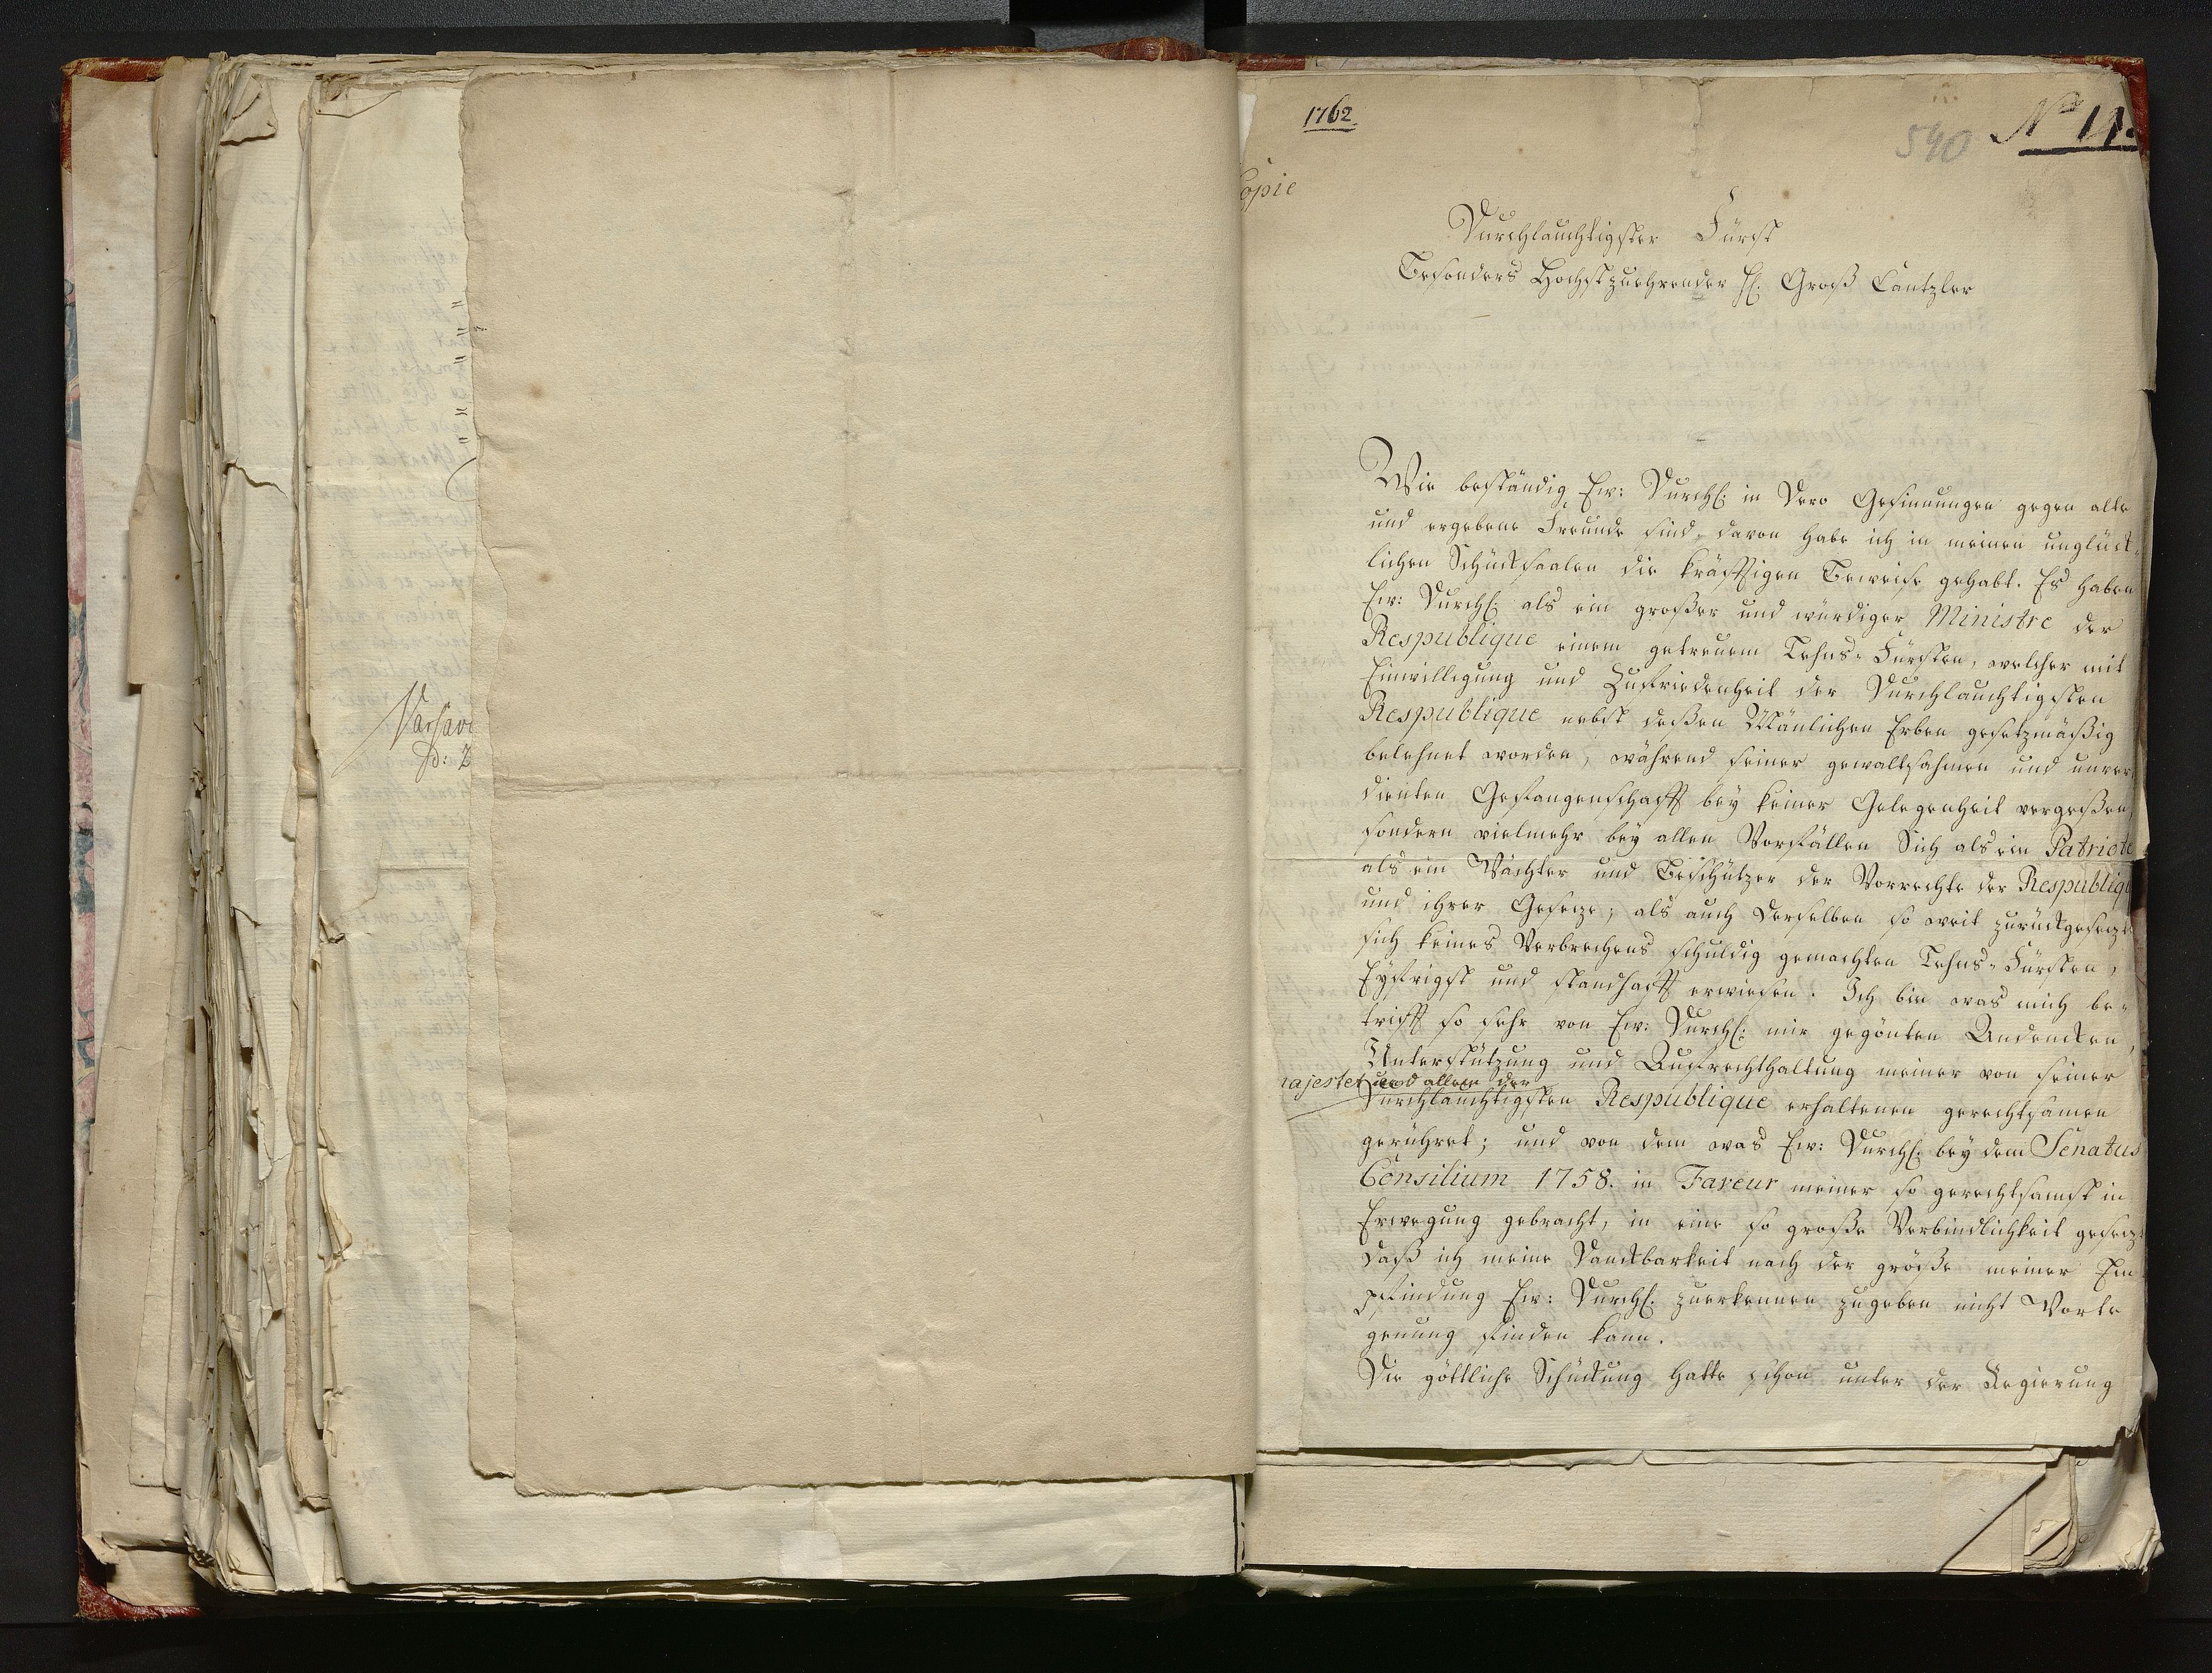 Varsavi
d: 2
1762
540
No 11.
Copie
Durchlauchtigster Fürst
Besonders Hochstzuehrender H. Groß Cantzler
Wie beständig Ew: Durchl. in Dero Gesinnungen gegen alte
und ergebene Freunde sind, davon habe ich in meinen unglück-
lichen Schücksaalen die kräfftigen Beweise gehabt. Es haben
Ew: Durchl. als ein großer und würdiger Ministre der
Respublique einem getreuem Lehns-Fürsten, welcher mit
Einwilligung und Zufriedenheit der Durchlauchtigsten
Respublique nebst deßen Mänlichen Erben gesetzmäßig
belehnet worden, während seiner gewaltsahmen und unver-
dienten Gefangenschafft bey keiner Gelegenheit vergeßen,
sondern vielmehr bey allen Vorfällen Sich als ein Patriote
als ein Wächter und Beschützer der Vorrechte der Respubliq
und ihrer Gesetze; als auch derselben so weit zurückgesezt
sich keines Verbrechens schuldig gemachten Lehns-Fürsten,
Eyfrigst und standhafft erwiesen. Ich bin was mich be-
trifft so sehr von Ew: Durchl: mir gegönten Andencken,
Unterstützung und Aufrechthaltung meiner von seiner
Majestet und allen der
Durchlauchtigsten Respublique erhaltenen gerechtsamen
gerühret; und von dem was Ew: Durchl. bey dem Senatus
Consilium 1758. in Faveur meiner so gerechtsamst in
Erwegung gebracht, in eine so große Verbindlichkeit gesezt
daß ich meine Danckbarkeit nach der größe meiner Em-
pfindung Ew: Durchl. zuerkennen zugeben nicht Worte
genung finden kann.
Die göttliche Schückung hatte schon unter der Regierung